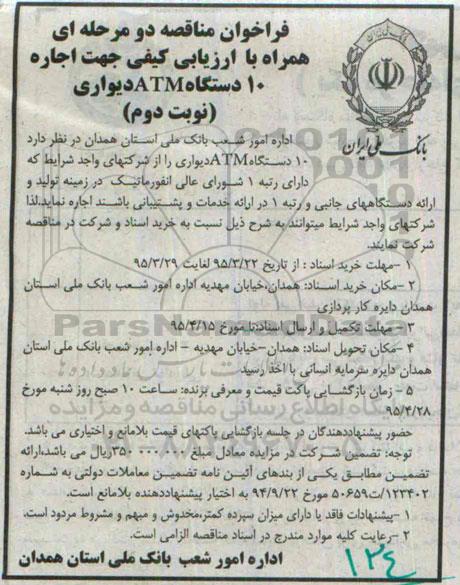 فراخوان مناقصه دو مرحله ای
همراه با ارزیابی کیفی جهت اجاره
۱۰ دستگاه ATM دیواری
(نوبت دوم)
بانک ملی ایران
اداره امور شعب بانک ملی استان همدان در نظر دارد
۱۰ دستگاه ATM دیواری را از شرکتهای واجد شرایط که
دارای رتبه ۱ شورای عالی انفورماتیک در زمینه تولید و
ارائه دستگاههای جانبی و رتبه ۱ در ارائه خدمات و پشتیبانی باشند اجاره نماید.لذا
شرکتهای واجد شرایط میتوانند به شرح ذیل نسبت به خرید اسناد و شرکت در مناقصه
شرکت نمایند.
۱-مهلت خرید اسناد : از تاریخ ۹۵/۳/۲۲ لغایت ۹۵/۳/۲۹
۲-مکان خرید اسناد: همدان،خیابان مهدیه اداره امور شعب بانک ملی استان
همدان دایره کار پردازی
۳- مهلت تکمیل و ارسال اسناد:تا مورخ ۹۵/۴/۱۵
۴-مکان تحویل اسناد: همدان-خیابان مهدیه - اداره امور شعب بانک ملی استان
همدان دایره سرمایه انسانی با اخذ رسید
۵- زمان بازگشایی پاکت قیمت و معرفی برنده: ساعت ۱۰ صبح روز شنبه مورخ
۹۵/۴/۲۸
حضور پیشنهاددهندگان در جلسه بازگشایی پاکتهای قیمت بلامانع و اختیاری می باشد.
توجه: تضمین شرکت در مزایده معادل مبلغ ۳۵۰۰۰۰۰۰۰ریال می باشد،ارائه
تضمین مطابق یکی از بندهای آئین نامه تضمین معاملات دولتی به شماره
۱۲۳۴۰۲/ت۵۰۶۵۹ مورخ ۹۴/۹/۲۲ به اختیار پیشنهاددهنده بلامانع است.
۱-پیشنهادات فاقد یا دارای میزان سپرده کمتر،مخدوش و مبهم و مشروط مردود است.
۲-رعایت کلیه موارد مندرج در اسناد مناقصه الزامی است.
اداره امور شعب بانک ملی استان همدان
۱۲۴